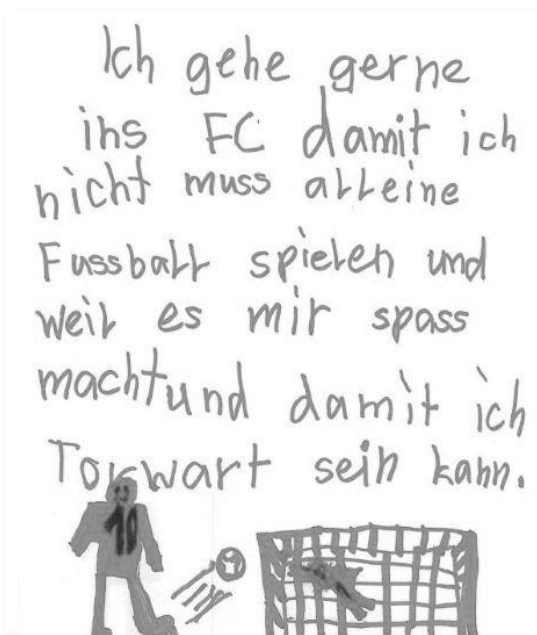 Ich gehe gerne
ins FC damit ich
nicht muss alleine
Fussball spielen und
weil es mir spass
macht und damit ich
Torwart sein kann.
10